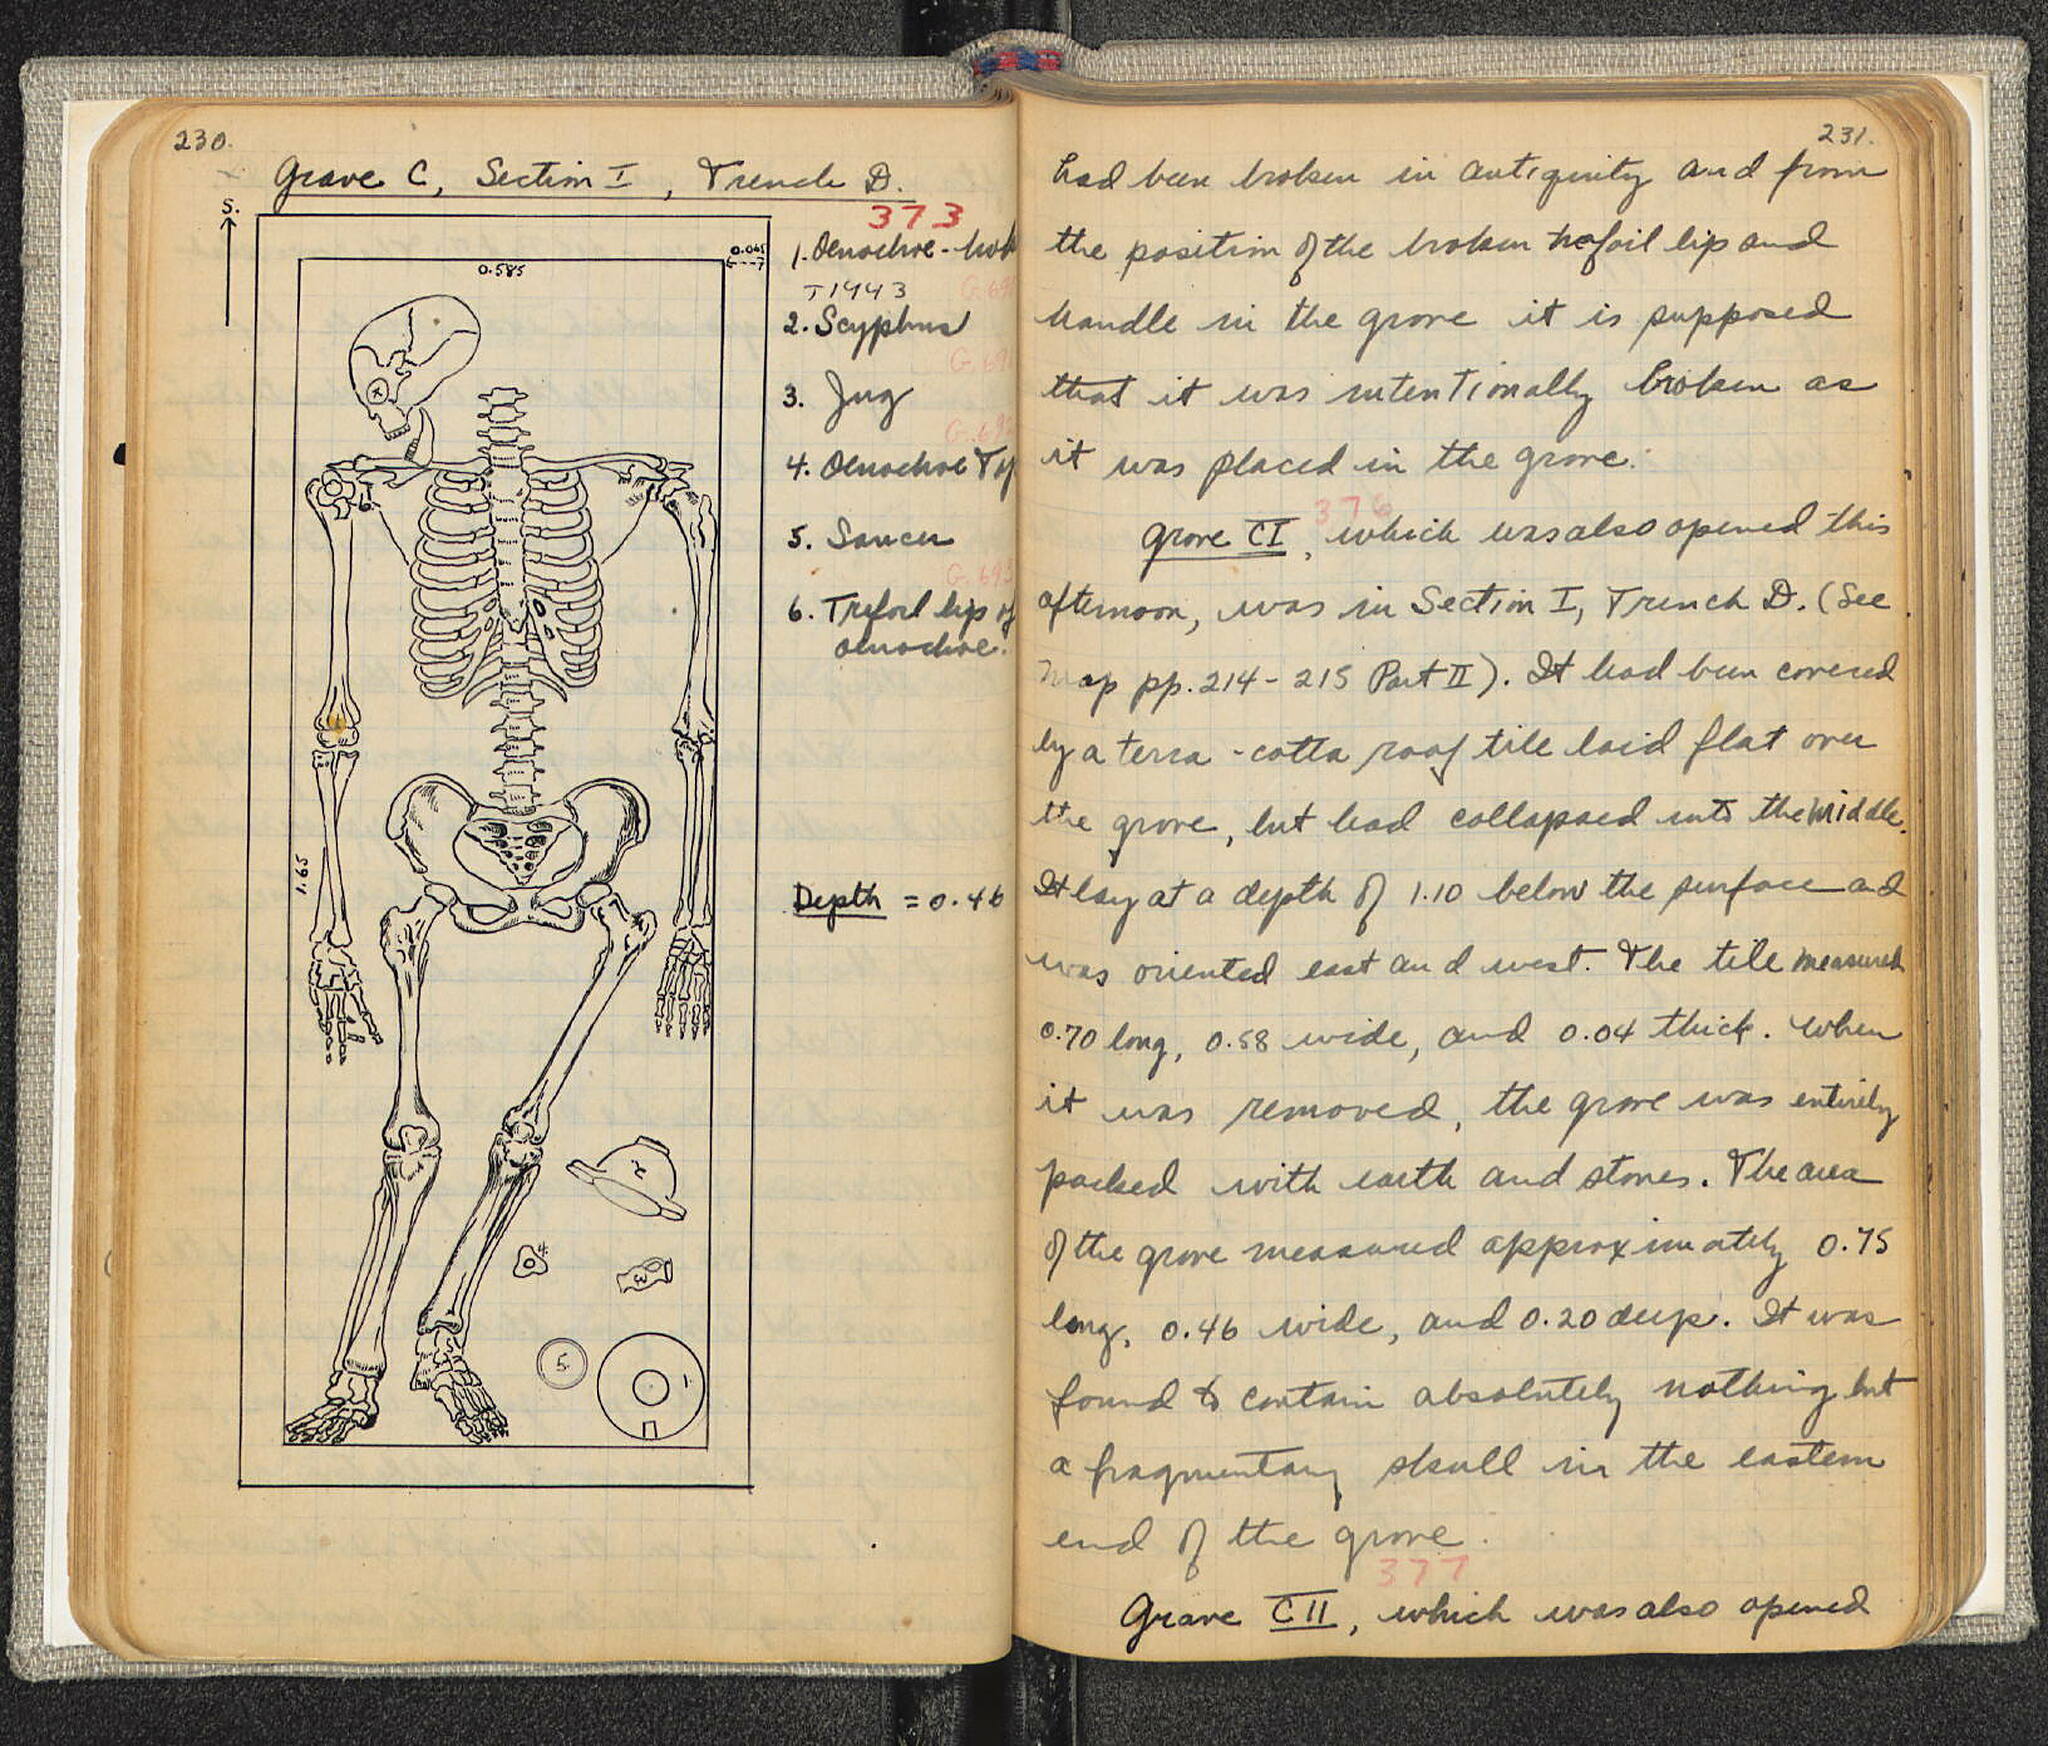 230.
Grave C, Section I, Trench D.
373
S.
0.065
0.585
1.65
1. Oenochoe -
T1443
G.69
2. Scyphus
G.69
3. Jug
G.69
4. Oenochoe
5. Saucer
G.693
6. Trefoil lip of
oenochoe.
Depth = 0.46
2
4.
3
5.
1
231.
had been broken in antiquity and from
the position of the broken trefoil lip and
handle in the grave it is supposed
that it was intentionally broken as
it was placed in the grave.
376
Grave CI, which was also opened this
afternoon, was in Section I, Trench D. (See
Map pp. 214-215 Part II). It had been covered
by a terra-cotta roof tile laid flat over
the grave, but had collapsed into the middle.
It lay at a depth of 1.10 below the surface and
was oriented east and west. The tile measured
0.70 long, 0.58 wide, and 0.04 thick. When
it was removed, the grave was entirely
packed with earth and stones. The area
of the grave measured approximately 0.75
long, 0.46 wide, and 0.20 deep. It was
found to contain absolutely nothing but
a fragmentary skull in the eastern
end of the grave.
377
Grave CII, which was also opened